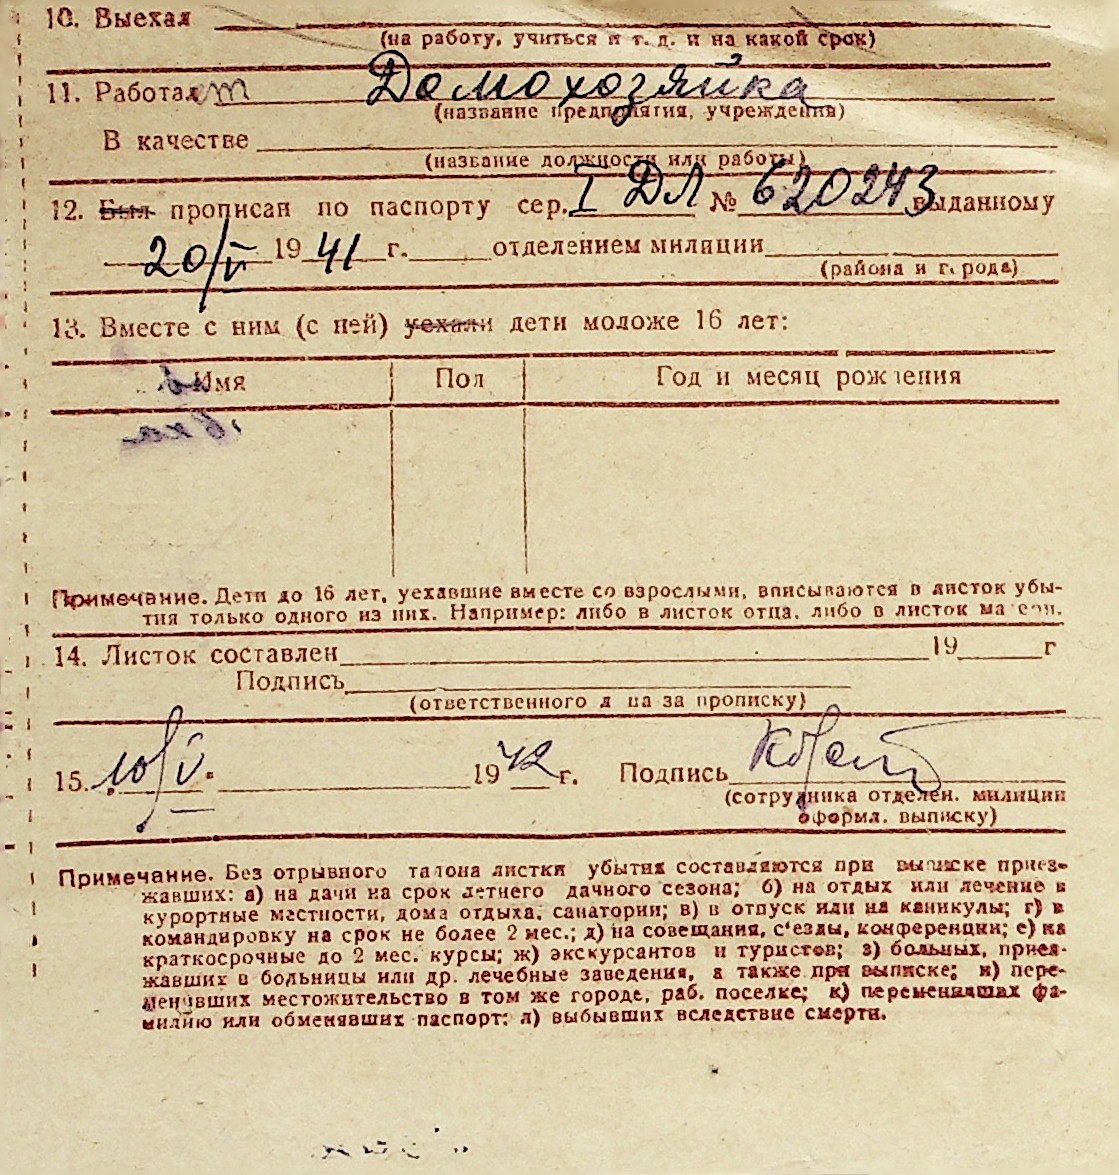 10. Выехал
(на работу, учиться и т. д. и на какой срок)
11. Работает Домохозяйка
(название предприятия, учреждения)
В качестве
(название должности или работы)
12. Был прописан по паспорту сер. I ДЛ № 620243 выданному
20/V 1941 г. отделением милиции
(района и города)
13. Вместе с ним (с ней) уехали дети моложе 16 лет:
Имя Пол Год и месяц рождения
Примечание. Дети до 16 лет, уехавшие вместе со взрослыми, вписываются в листок убы-
тия только одного из них. Например: либо в листок отца, либо в листок матери.
14. Листок составлен 19 г
Подпись
(ответственного лица за прописку)
15. 10/V 1942 г. Подпись
(сотрудника отделен. милиции
оформл. выписку)
Примечание. Без отрывного талона листки убытия составляются при выписке приез-
жавших: а) на дачи на срок летнего дачного сезона; б) на отдых или лечение в
курортные местности, дома отдыха, санатории; в) в отпуск или на каникулы; г) в
командировку на срок не более 2 мес.; д) на совещания, с'езды, конференции; е) на
краткосрочные до 2 мес. курсы; ж) экскурсантов и туристов; з) больных, приез-
жавших в больницы или др. лечебные заведения, а также при выписке; и) пере-
менивших местожительство в том же городе, раб. поселке; к) переменивших фа-
милию или обменявших паспорт; л) выбывших вследствие смерти.